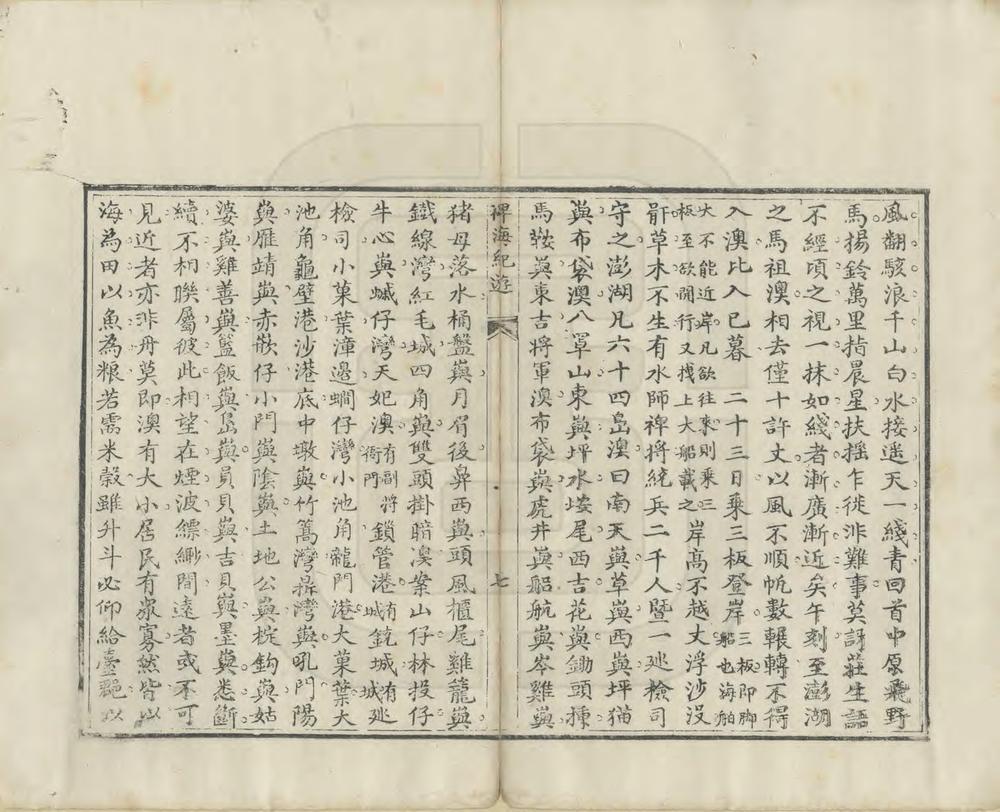 風翻駭浪千山白水接遥天一綫青回首中原飛野
馬揚鈴萬里指晨星扶摇乍徙非難事莫訝莊生語
不經頃之視一抹如綫者漸廣漸近矣午刻至澎湖
之馬祖澳相去僅十許丈以風不順帆數輾轉不得
入澳比入已暮二十三日乗三板登岸三板即脚船也海舶
大不能近岸凡欲往來則乗三板至欲開行又拽上大船載之岸高不越丈浮沙没
骭草木不生有水師裨將統兵二千人暨一廵檢司
守之澎湖凡六十四島澳曰南天嶼草嶼西嶼坪猫
嶼布袋澳八罩山東嶼坪水垵尾西吉花嶼鋤頭挿
馬鞍嶼東吉將軍澳布袋嶼虎井嶼船航嶼岑雞嶼
裨海紀遊
七
猪母落水桶盤嶼月眉後鼻西嶼頭風櫃尾雞籠嶼
鐵線灣紅毛城四角嶼雙頭掛暗澳案山仔林投仔
牛心嶼蠘仔灣天妃澳有副將衙門鎖管港有銃城城有廵
檢司小菓葉潭邊蟳仔灣小池角龍門港大菓葉大
池角龜壁港沙港底中墩嶼竹篙灣鼎灣嶼吼門陽
嶼雁靖嶼赤嵌仔小門嶼陰嶼土地公嶼椗鈎嶼姑
婆嶼雞善嶼籃飯嶼島嶼員貝嶼吉貝嶼墨嶼悉斷
續不相聯屬彼此相望在煙波縹緲間遠者或不可
見近者亦非舟莫即澳有大小居民有衆寡然皆以
海為田以魚為粮若需米穀雖升斗必仰給臺